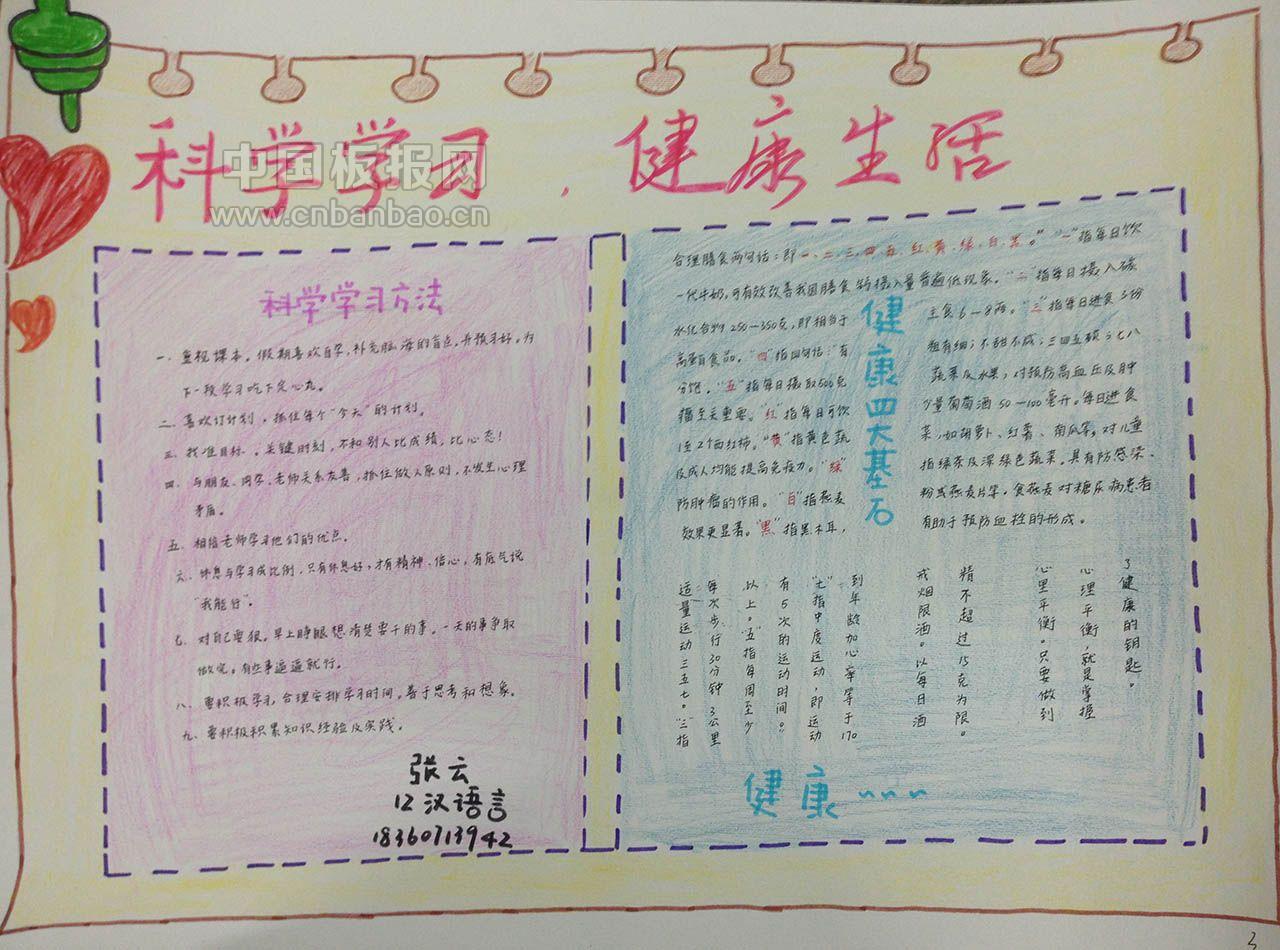 科学学习，健康生活
中国板报网
www.cnbanbao.cn
科学学习方法
一、重视课本。假期喜欢自学，补充脑海的盲点，并预习好，为
下一段学习吃下定心丸。
二、喜欢订计划，抓住每个“今天”的计划。
三、找准目标。关键时刻，不和别人比成绩，比心态！
四、与朋友、同学、老师关系友善，抓住做人原则，不发生心理
矛盾。
五、相信老师学习他们的优点。
六、休息与学习成比例，只有休息好，才有精神、信心，有底气说
“我能行”。
七、对自己要狠。早上睁眼想清楚要干的事。一天的事争取
做完。有些事逼逼就行。
八、要积极学习，合理安排学习时间。善于思考和想象。
九、要积极积累知识经验及实践。
张云
12汉语言
18360713942
健康四大基石
合理膳食两句话：即一、二、三、四、五、红、黄、绿、白、黑。”“一”指每日饮
一代牛奶，可有效改善我国膳食钙摄入量普遍低现象。“二”指每日摄入碳
水化合物250—350克，即相当于
主食6—8两。“三”指每日进食3份
高蛋白食品。“四”指四句话：“有
粗有细；不甜不咸；三四五顿；七八
分饱。“五”指每日摄取500克
蔬菜及水果，对预防高血压及肿
瘤至关重要。“红”指每日可饮
少量葡萄酒50—100毫升。每日进食
1至2个西红柿。“黄”指黄色蔬
菜，如胡萝卜、红薯、南瓜等，对儿童
及成人均能提高免疫力。“绿”
指绿茶及深绿色蔬菜。具有防感染、
防肿瘤的作用。“白”指燕麦
粉或燕麦片等，食燕麦对糖尿病患者
效果更显著。“黑”指黑木耳，
有助于预防血拴的形成。
适量运动三五七。“三”指
每次步行30分钟3公里
以上。“五”指每周至少
有5次的运动时间。
“七”指中度运动，即运动
到年龄加心率等于170
戒烟限酒。以每日酒
精不超过15克为限。
心里平衡。只要做到
心理平衡，就是掌握
了健康的钥匙。
健康~~~
3